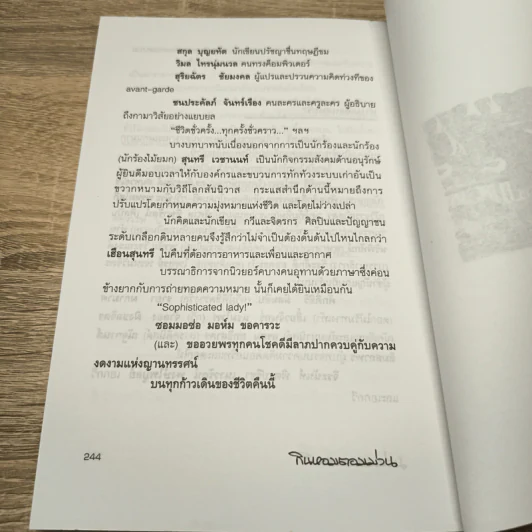 สกุล บุญยทัต นักเขียนปรัชญาชื่นทฤษฎีชม
วิมล ไทรนิ่มนวล คนทรงคือมพิวเตอร์
สุริยฉัตร ชัยมงคล ผู้แปรและปรวนความคิดท่วงทีของ
avant-garde
ชนประคัลภ์ จันทร์เรือง คนละครและครูละคร ผู้อธิบาย
ถึงกามาวิสัยอย่างแยบยล
“ชีวิตชั่วครั้ง...ทุกครั้งชั่วคราว...” ฯลฯ
บางบทบาทนับเนื่องนอกจากการเป็นนักร้องและนักร้อง
(นักร้องไม้ยมก) สุนทรี เวชานนท์ เป็นนักกิจกรรมสังคมด้านอนุรักษ์
ผู้ยินดีมอบเวลาให้กับองค์กรและขบวนการทักท้วงระบบเก่าอันเป็น
ขวากหนามกับวิถีโลกสันนิวาส กระแสสำนึกด้านนี้หมายถึงการ
ปรับแปรโดยกำหนดความมุ่งหมายแห่งชีวิต และโดยไม่ว่างเปล่า
นักคิดและนักเขียน กวีและจิตรกร ศิลปินและปัญญาชน
ระดับเกลือกดินหลายคนจึงรู้สึกว่าไม่จำเป็นต้องดั้นด้นไปไหนไกลกว่า
เฮือนสุนทรี ในคืนที่ต้องการอาหารและเพื่อนและอากาศ
บรรณาธิการจากนิวยอร์คบางคนอุทานด้วยภาษาซึ่งค่อน
ข้างยากกับการถ่ายทอดความหมาย นั้นก็เคยได้ยินเหมือนกัน
“Sophisticated lady!”
ซอมมอซ่อ มอห์ม ขอคารวะ
(และ) ขออวยพรทุกคนโชคดีมีลาภปากควบคู่กับความ
งดงามแห่งญานทรรศน์
บนทุกก้าวเดินของชีวิตคืนนี้
244